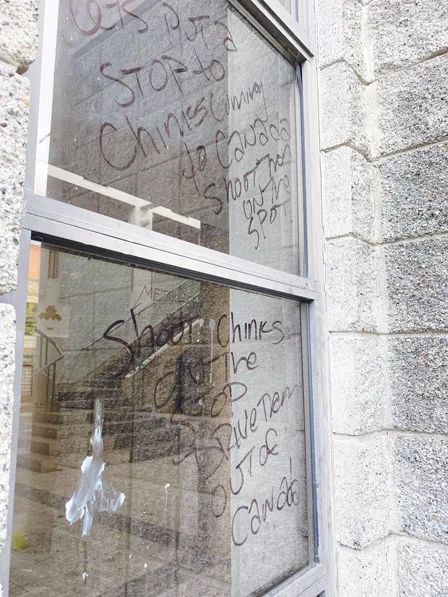 LETS PUT a
STOP to
Chinks Coming
to CANADA
Shoot them
ON the
SPOT
METRO
Shoot Chinks
ON The
DRIVE Them
OUT OF
CANADA!